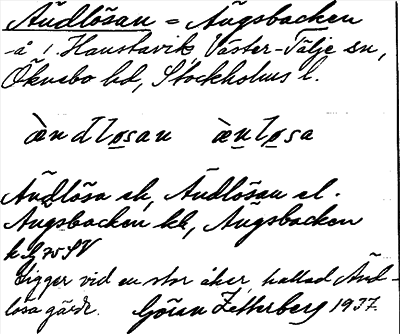 Ändlösan = Ängsbacken
å i Haustavik, Väster-Tälje sn,
Öknebo hd, Stockholms l.
ändlo̲san än̲lo̲sa
Ändlösa ek, Ändlösan el.
Ängsbacken kk, Ängsbacken
Ligger vid en stor åker, kallad Änd-
lösa gärde. Göran Zetterberg 1937.